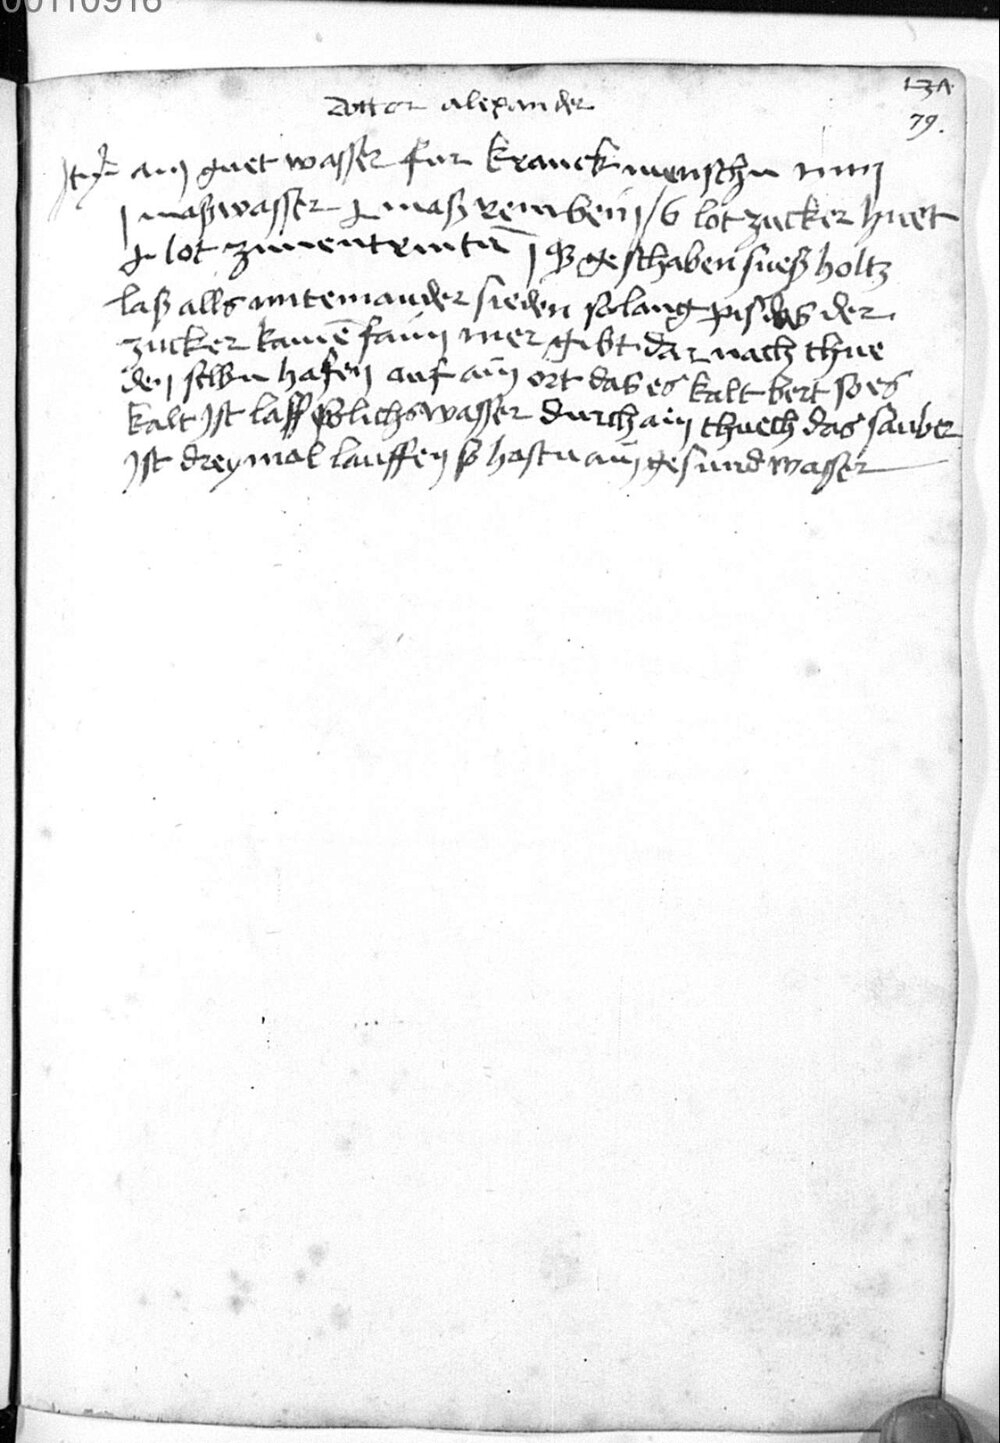 00110916
131
79.
Dottor alexander
Jtem ain guet wasser fur kranck menschn nim
j maß wasser maß rein bein / 6 lot zucker huet
lot zimentrintn j geschaben sueß holtz
laß alls mit einander sieden so lang pis das der
zucker kainē faim mer gibt dar nach thue
den selbn hafen auf ain ort das es kalt bert so es
kalt Jst laß solichs wasser durch ain thuech das sauber
Jst drey mal lauffen so hastu ain gesund wasser